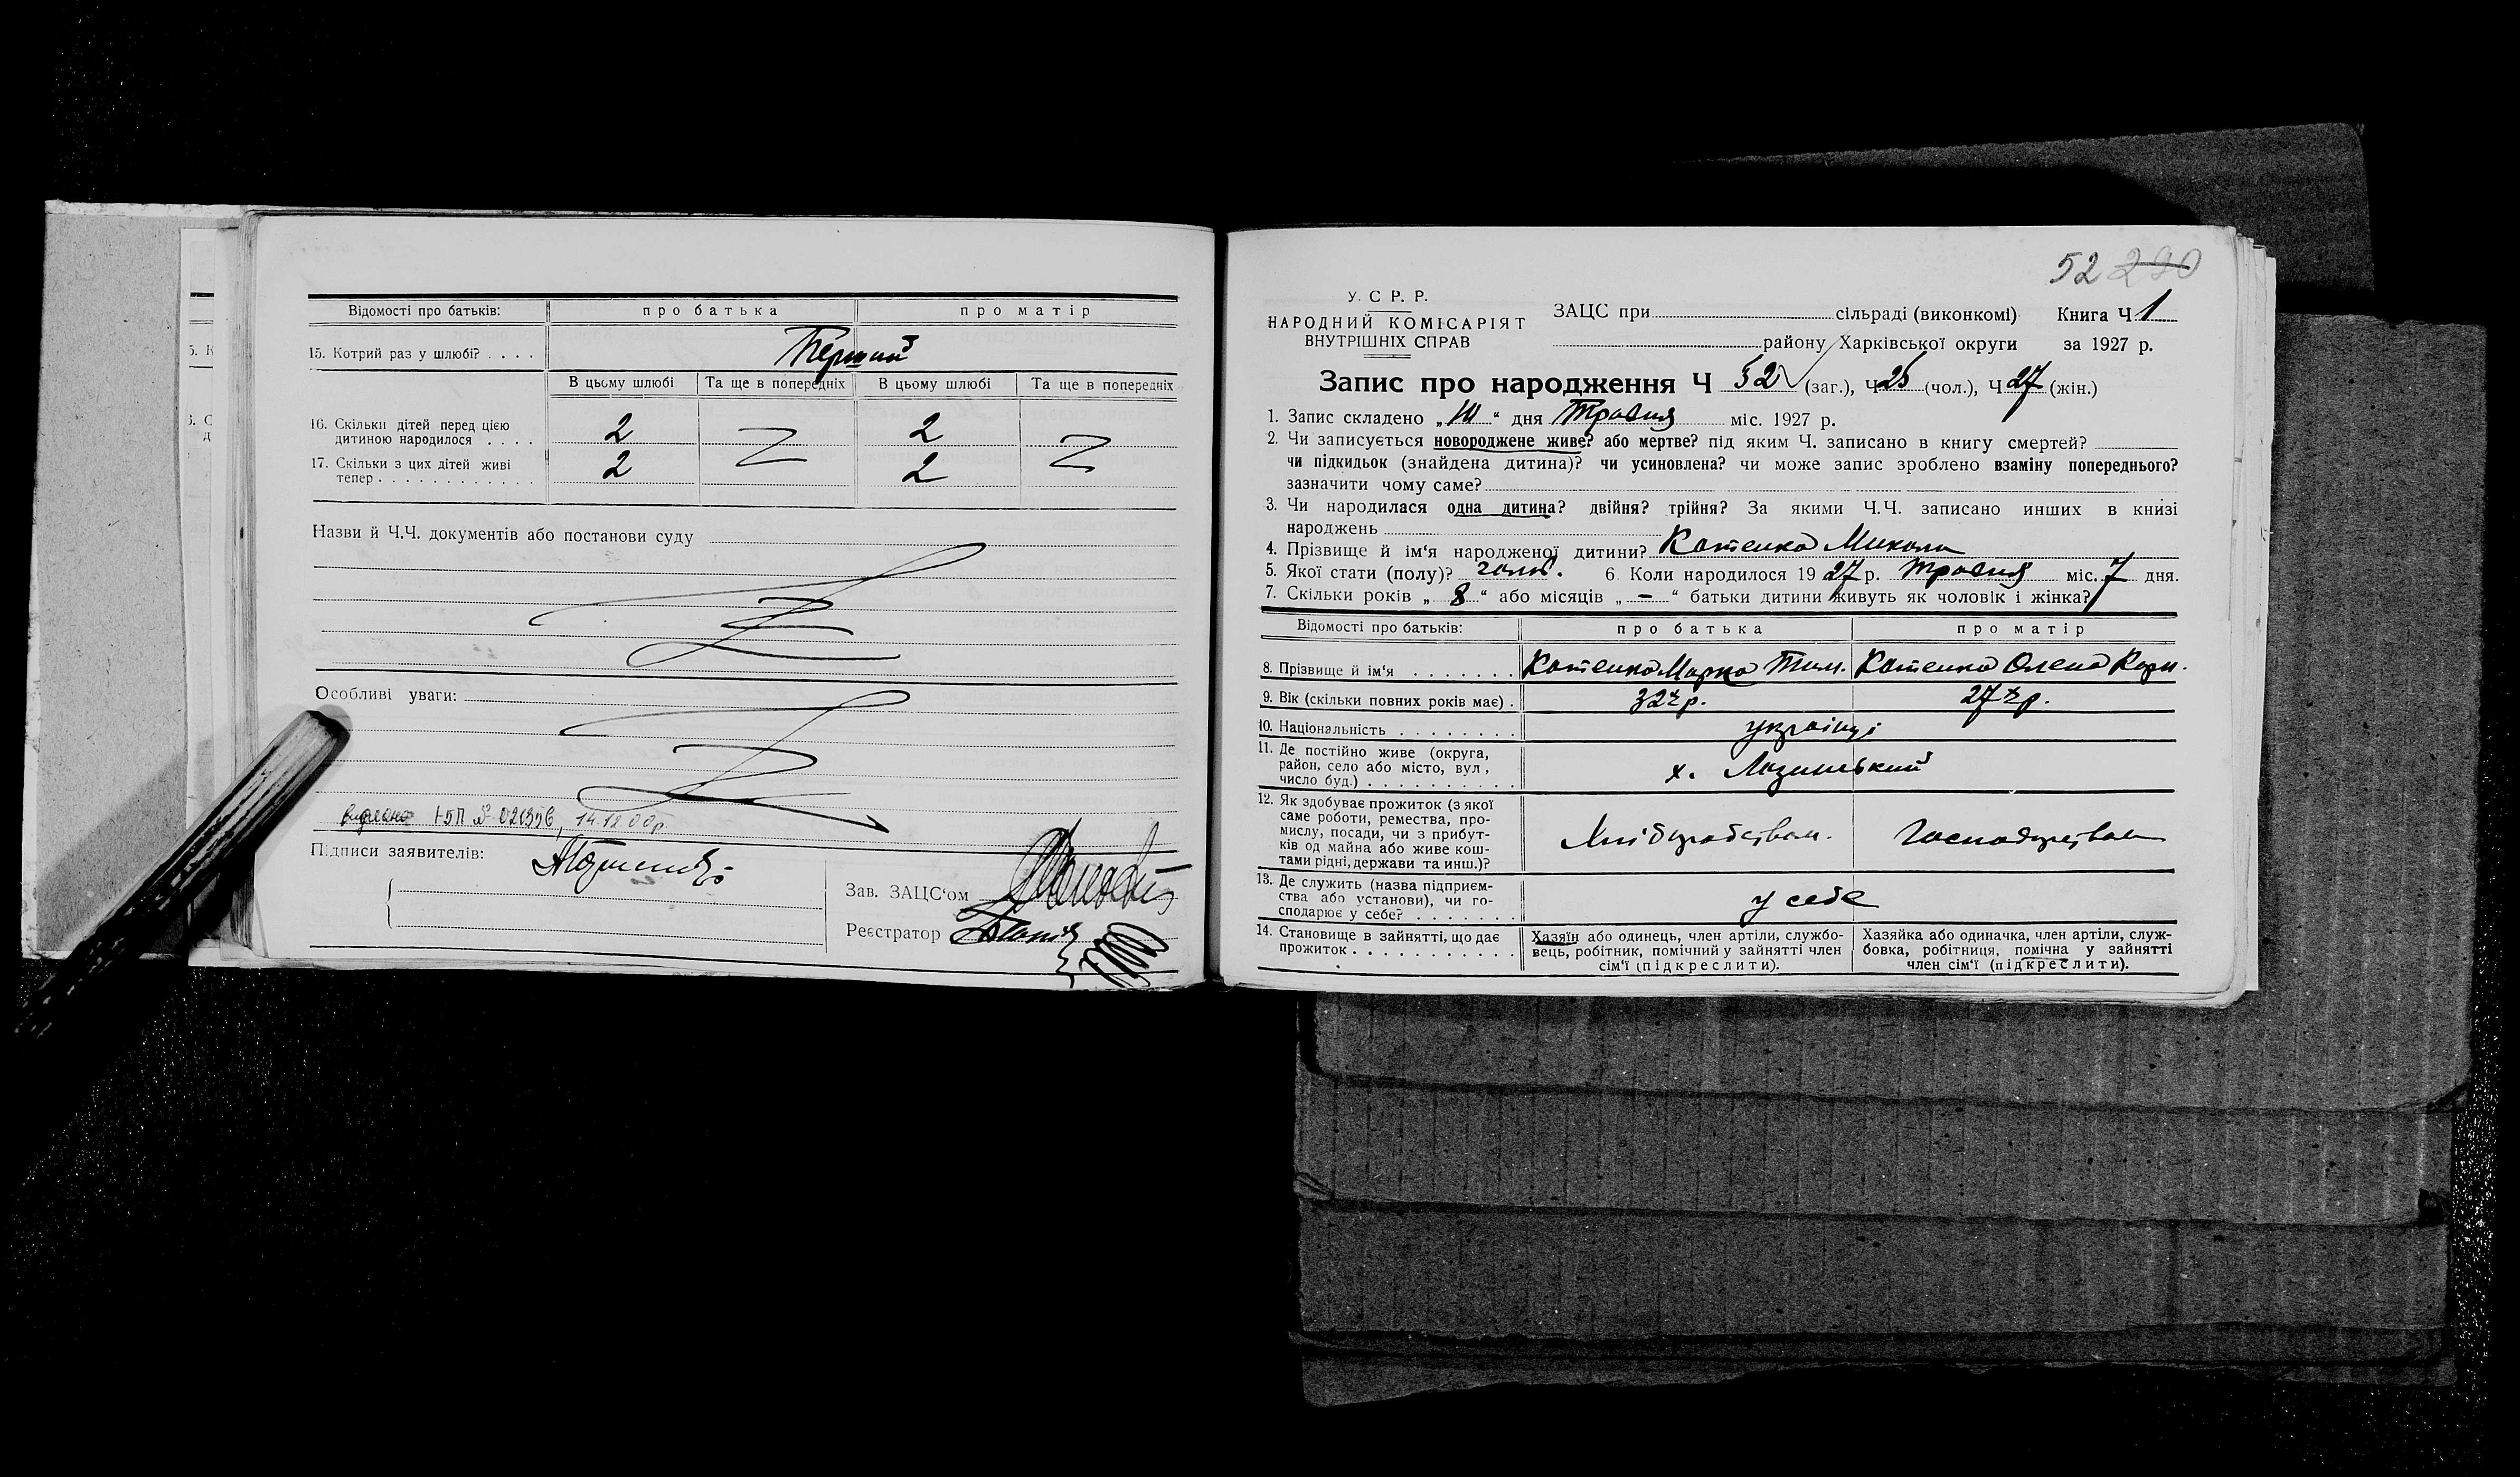 Відомості про батьків: про батька про матір
15. Котрий раз у шлюбі? . . . . Перший
В цьому шлюбі Та ще в попередніх В цьому шлюбі Та ще в попередніх
16. Скільки дітей перед цією
дитиною народилося . . . . 2 2
17. Скільки з цих дітей живі
тепер . . . . . . . . . . . . 2 2
Назви й Ч.Ч. документів або постанови суду
Особливі уваги:
видано І-БП № 021356, 14.12.00р.
Підписи заявителів:
Зав. ЗАЦС‘ом
Реєстратор
52 280
У. С. Р. Р.
НАРОДНИЙ КОМІСАРІЯТ
ВНУТРІШНІХ СПРАВ
ЗАЦС при сільраді (виконкомі) Книга Ч 1
району Харківської округи за 1927 р.
Запис про народження Ч 52 (заг.), Ч 25 (чол.), Ч 27 (жін.)
1. Запис складено „10“ дня Травня міс. 1927 р.
2. Чи записується новороджене живе? або мертве? під яким Ч. записано в книгу смертей?
чи підкидьок (знайдена дитина)? чи усиновлена? чи може запис зроблено взаміну попереднього?
зазначити чому саме?
3. Чи народилася одна дитина? двійня? трійня? За якими Ч.Ч. записано инших в книзі
народжень
4. Прізвище й ім‘я народженої дитини? Котенко Микола
5. Якої стати (полу)? чолов. 6. Коли народилося 1927 р. Травня міс. 7 дня.
7. Скільки років „8“ або місяців „—“ батьки дитини живуть як чоловік і жінка?
Відомості про батьків: про батька про матір
8. Прізвище й ім‘я . . . . . . . Котенко Марко Тим. Котенко Олена Корн.
9. Вік (скільки повних років має) . 32 р. 27 р.
10. Національність . . . . . . . . українці
11. Де постійно живе (округа,
район, село або місто, вул.,
число буд.) . . . . . . . . . . х. Лозинський
12. Як здобуває прожиток (з якої
саме роботи, ремества, про-
мислу, посади, чи з прибут-
ків од майна або живе кош-
тами рідні, держави та инш.)?
Хліборобством. Господарством
13. Де служить (назва підприєм-
ства або установи), чи го-
сподарює у себе? . . . . . . . у себе
14. Становище в зайнятті, що дає
прожиток . . . . . . . . . . .
Хазяїн або одинець, член артілі, службо-
вець, робітник, помічний у зайнятті член
сім‘ї (підкреслити).
Хазяйка або одиначка, член артілі, служ-
бовка, робітниця, помічна у зайнятті
член сім‘ї (підкреслити).